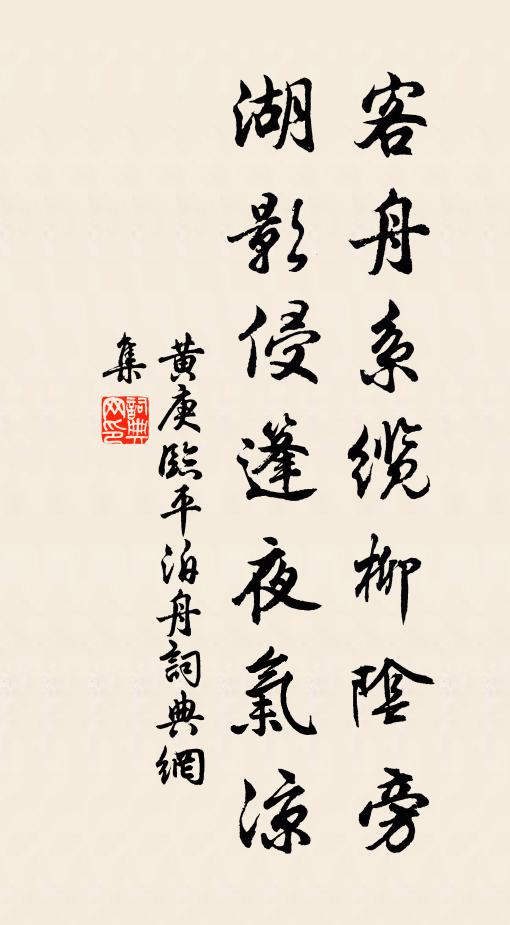 客舟系纜柳陰旁
湖影侵篷夜氣涼
黄庚臨平泊舟詞典網
集
詞典
网印